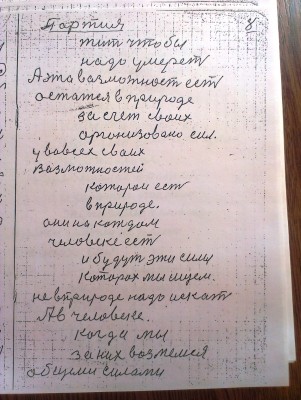 Партия 8
жит чтобы
надо умерет
А эта возможност ест
остатся в природе
за счет своих
организовано сил.
у вовсех своих
возможностей
которои ест
в природе.
они на каждом
человеке ест
и будут эти силы
которах мы ищем.
не в природе надо искат
А в человеке.
когда мы
за них возмемся
общими силами